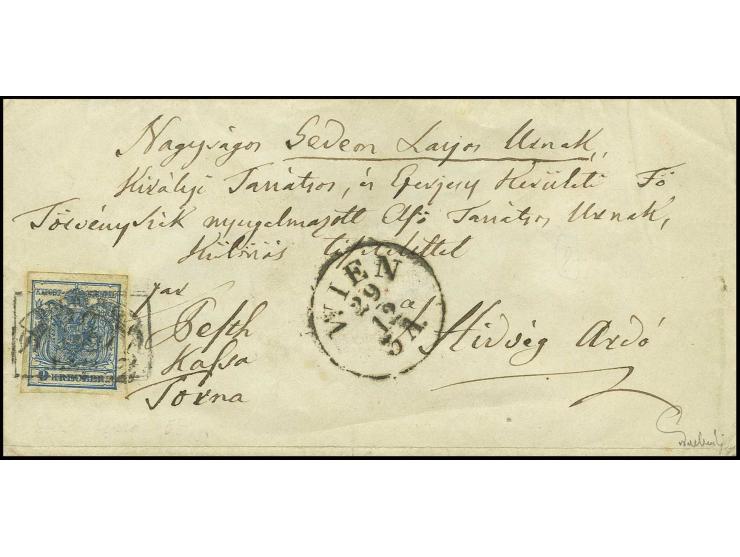 Nagyságos Gedeon Lajos Urnak,
Királyi Tanátsos, és Eperjesy Kerületi Fő
Törvényszék nyugalmazott Alsó Tanátsos Urnak,
Különös tisztelettel
par
Pesth
Kassa
Torna
a Hidvég Ardó
WIEN
29
12
5A
9 KREUZER